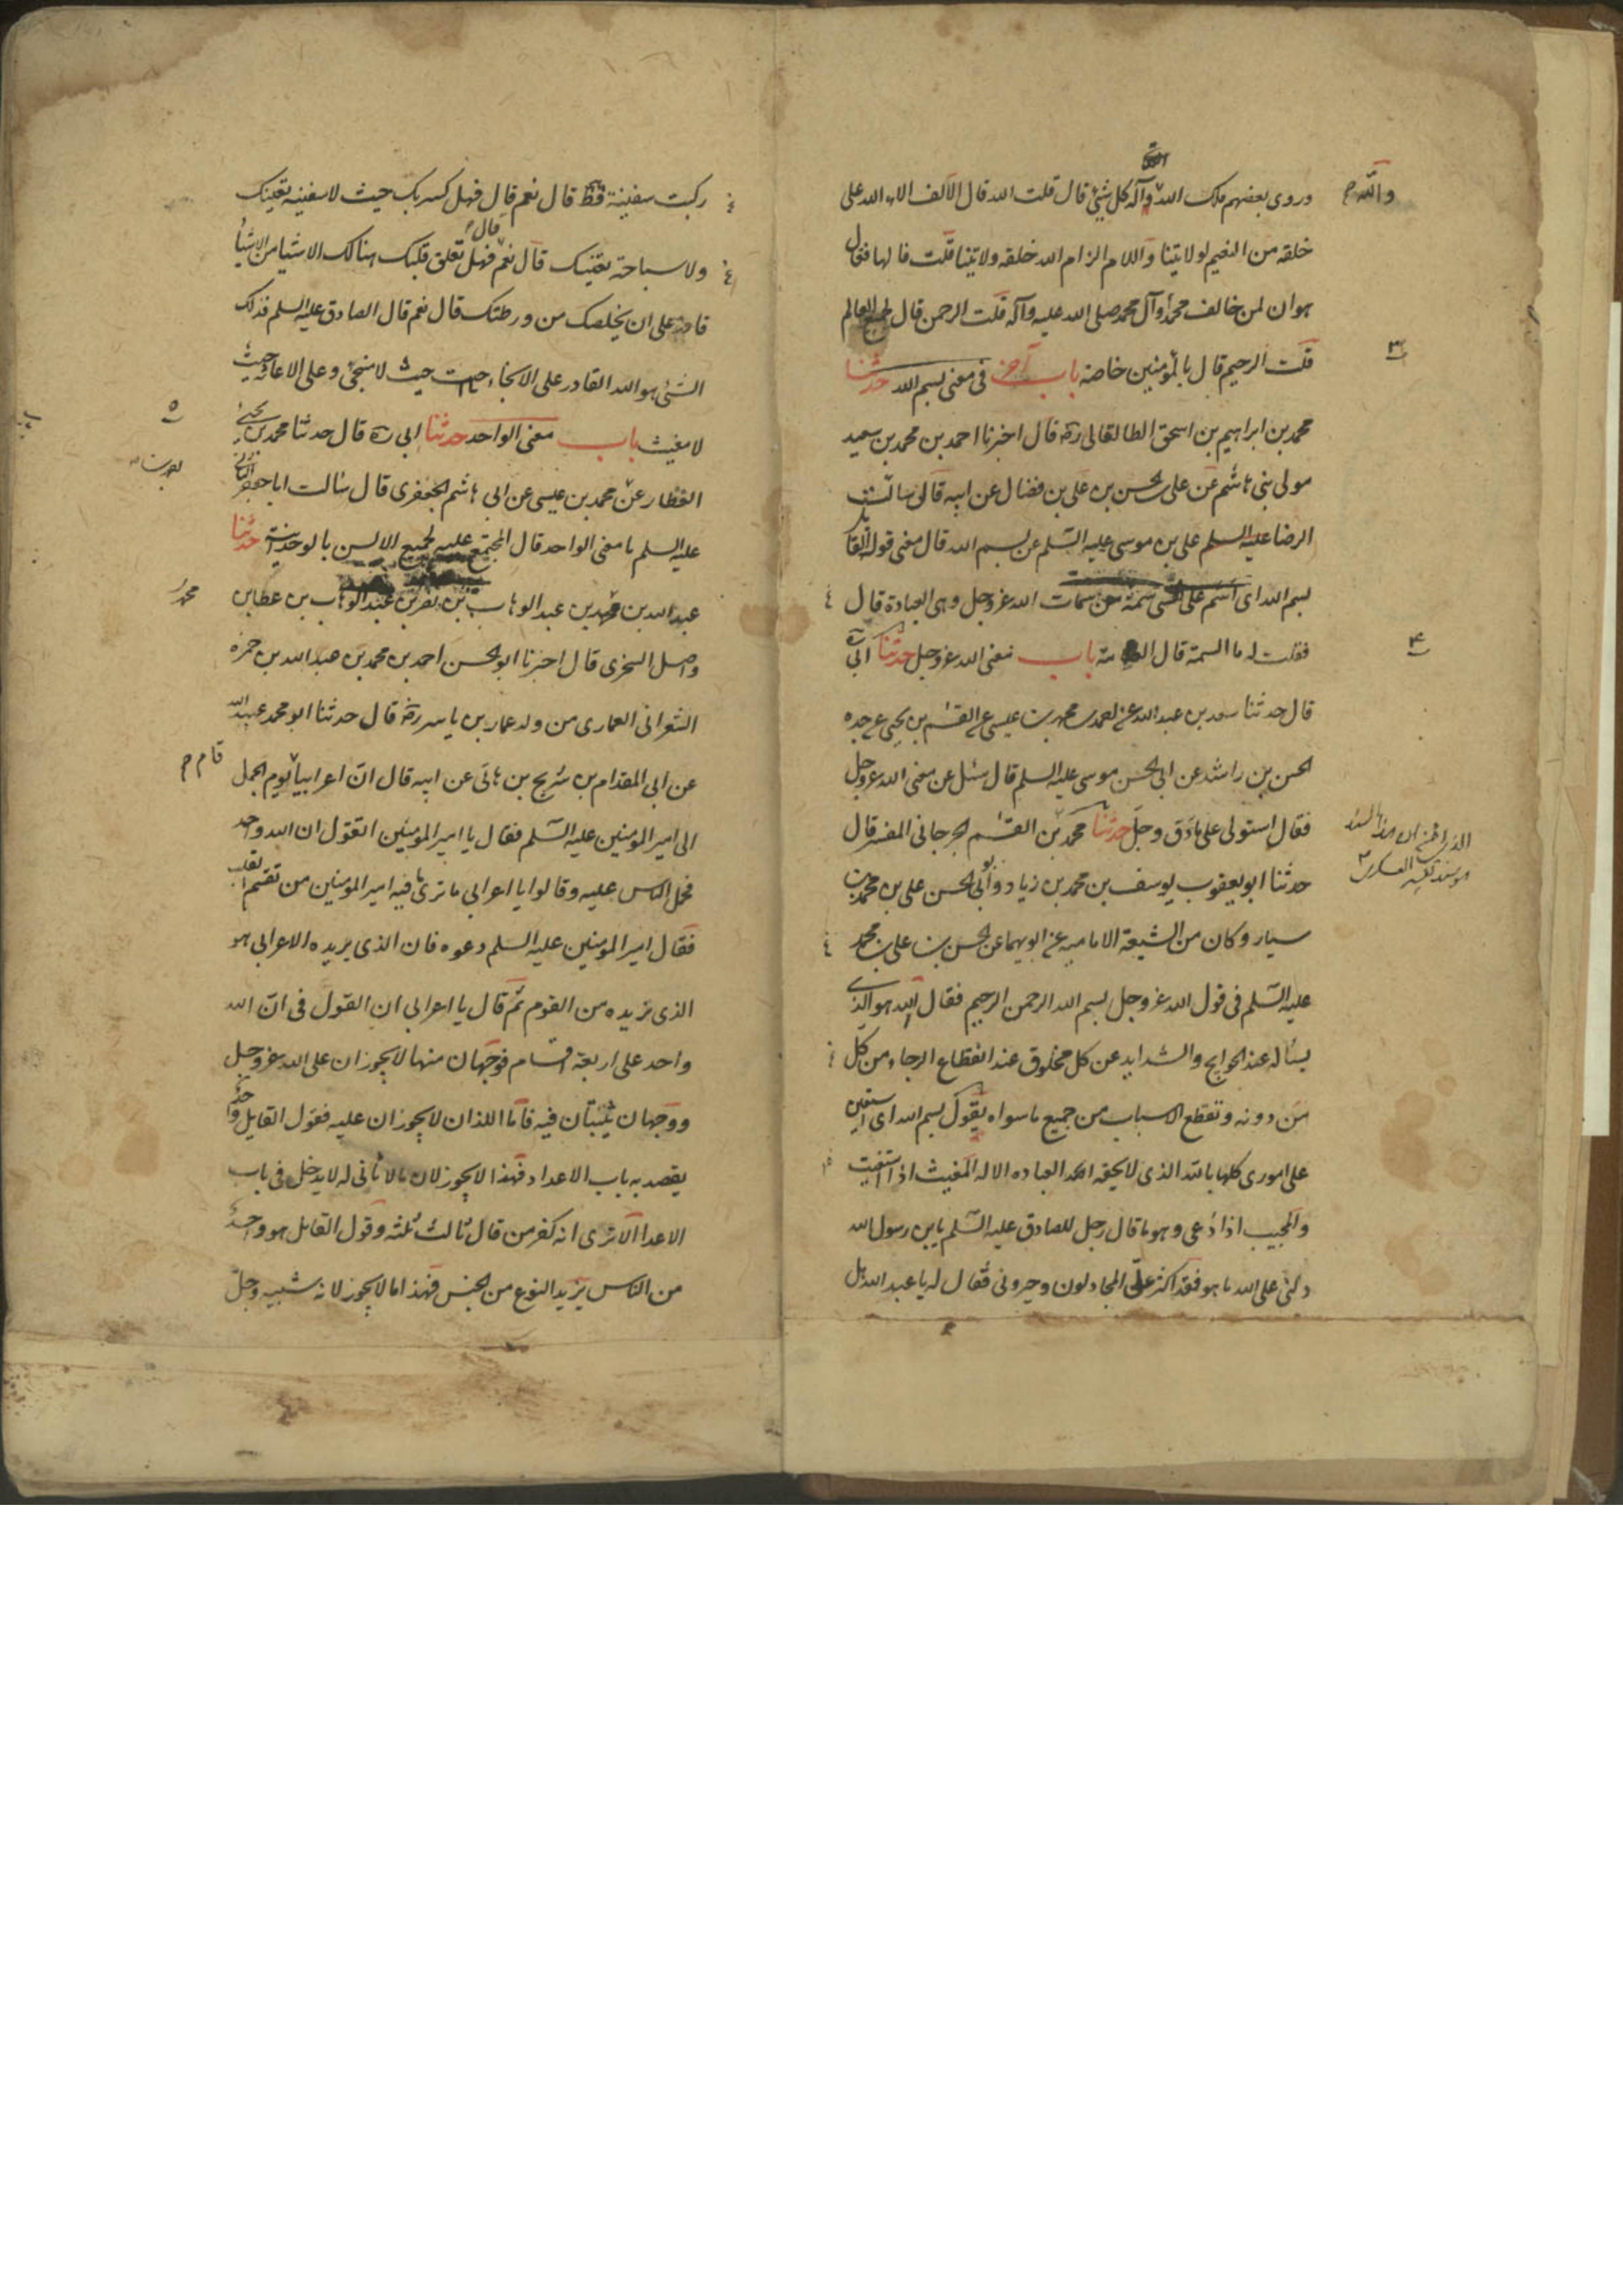 وروى بعضهم ملك الله وآله كل شيئ قال قلت الله قال الالف الاء الله على
والله م
خلقه من النعيم لولايتنا واللام الزام الله خلقه ولايتنا قلت فالها فقال
هوان لمن خالف محمدا وآل محمد صلى الله عليه وآله قلت الرحمن قال لجميع العالم
قلت الرحيم قال بالمؤمنين خاصة باب آخر في معنى بسم الله حدثنا
محمد بن ابراهيم بن اسحق الطالقاني ره قال اخبرنا احمد بن محمد بن سعيد
مولى بني هاشم عن علي بن الحسن بن علي بن فضال عن ابيه قال سالت
الرضا عليه السلم علي بن موسى عليه السلم عن بسم الله قال معنى قول القائل
بسم الله اى اسم على نفسي سمة من سمات الله عزوجل وهى العبادة قال
فقلت له ما السمة قال العلامة باب معنى الله عزوجل حدثنا ابي ره
قال حدثنا سعد بن عبد الله عن احمد بن محمد بن عيسى عن القسم بن يحيى عن جده
الحسن بن راشد عن ابي الحسن موسى عليه السلم قال سئل عن معنى الله عزوجل
فقال استولى على ما دق وجل حدثنا محمد بن القسم الجرجاني المفسر قال
حدثنا ابو يعقوب يوسف بن محمد بن زياد وابو الحسن علي بن محمد بن
سيار وكان من الشيعة الامامية عن ابويهما عن الحسن بن علي بن محمد
عليه السلم في قول الله عزوجل بسم الله الرحمن الرحيم فقال الله هو الذي
يتأله عند الحوايج والشدايد عن كل مخلوق عند انقطاع الرجاء من كل
من دونه وتقطع الاسباب من جميع ما سواه يقول بسم الله اى استعين
على امورى كلها بالله الذى لا يحقه احد العباده الا له المغيث اذا استغيث
والمجيب اذا دعى وهو ما قال رجل للصادق عليه السلم يابن رسول الله
دلني على الله ما هو فقد اكثر على المجادلون وحيروني فقال له يا عبد الله هل
ركبت سفينة قط قال نعم قال فهل كسر بك حيث لا سفينه تنجيك
ولا سباحة تغنيك قال نعم قال فهل تعلق قلبك هنالك ان شيئا من الاشيا
قادر على ان يخلصك من ورطتك قال نعم قال الصادق عليه السلم فذلك
الشئى هو الله القادر على الانجاء حيث لا منجى وعلى الاغاثة حيث
لا مغيث باب معنى الواحد حدثنا ابي ره قال حدثنا محمد بن يحيى
العطار عن محمد بن عيسى عن ابي هاشم الجعفرى قال سالت ابا جعفر الثاني
عليه السلم ما معنى الواحد قال المجتمع عليه لجميع الالسن بالوحدانية حدثنا
عبد الله بن محمد بن عبد الوهاب بن نصر بن عبد الوهاب بن عطاء بن
واصل السجزى قال اخبرنا ابو الحسن احمد بن محمد بن عبد الله بن حمزه
الشعراني العمارى من ولد عمار بن ياسر ره قال حدثنا ابو محمد عبيد الله
عن ابي المقدام بن شريح بن هانى عن ابيه قال ان اعرابيا يوم الجمل
قام م
الى امير المؤمنين عليه السلم فقال يا امير المؤمنين اتقول ان الله واحد
فحمل الناس عليه وقالوا يا اعرابي ما ترى ما فيه امير المؤمنين من تقسم القلب
فقال امير المؤمنين عليه السلم دعوه فان الذى يريده الاعرابي هو
الذى نريده من القوم ثم قال يا اعرابي ان القول في ان الله
واحد على اربعة اقسام فوجهان منها لا يجوزان على الله عزوجل
ووجهان يثبتان فيه فاما اللذان لا يجوزان عليه فقول القايل واحد
يقصد به باب الاعداد فهذا لا يجوز لان ما لا ثاني له لا يدخل في باب
الاعداد الا ترى انه كفر من قال ثالث ثلثه وقول القايل هو واحد
من الناس يريد النوع من الجنس فهذا ما لا يجوز لانه شبيه وجل